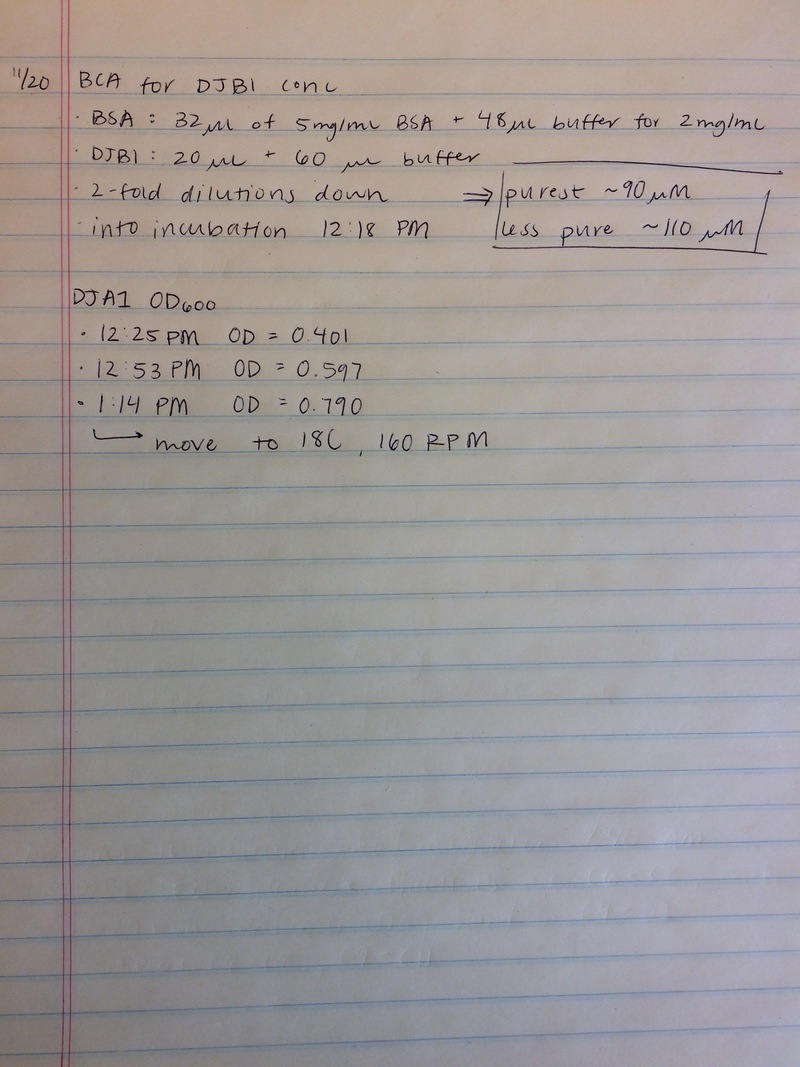 11/20 BCA for DJB1 conc
· BSA : 32 μL of 5mg/mL BSA + 48 μL buffer for 2mg/mL
· DJB1 : 20 μL + 60 μL buffer
· 2-fold dilutions down ⇒ purest ~90 μM
· into incubation 12:18 PM less pure ~110 μM
DJA1 OD600
· 12:25 PM OD = 0.401
· 12:53 PM OD = 0.597
· 1:14 PM OD = 0.790
→ move to 18C, 160 RPM